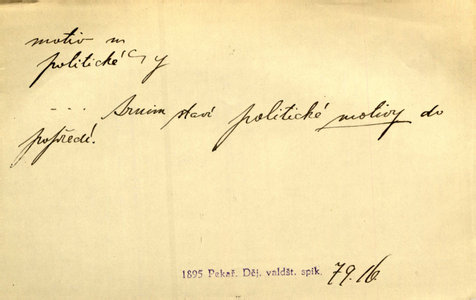 motiv m
politické y
... Arnim staví politické motivy do
popředí.
1895 Pekař. Děj. valdšt. spik. 79.16